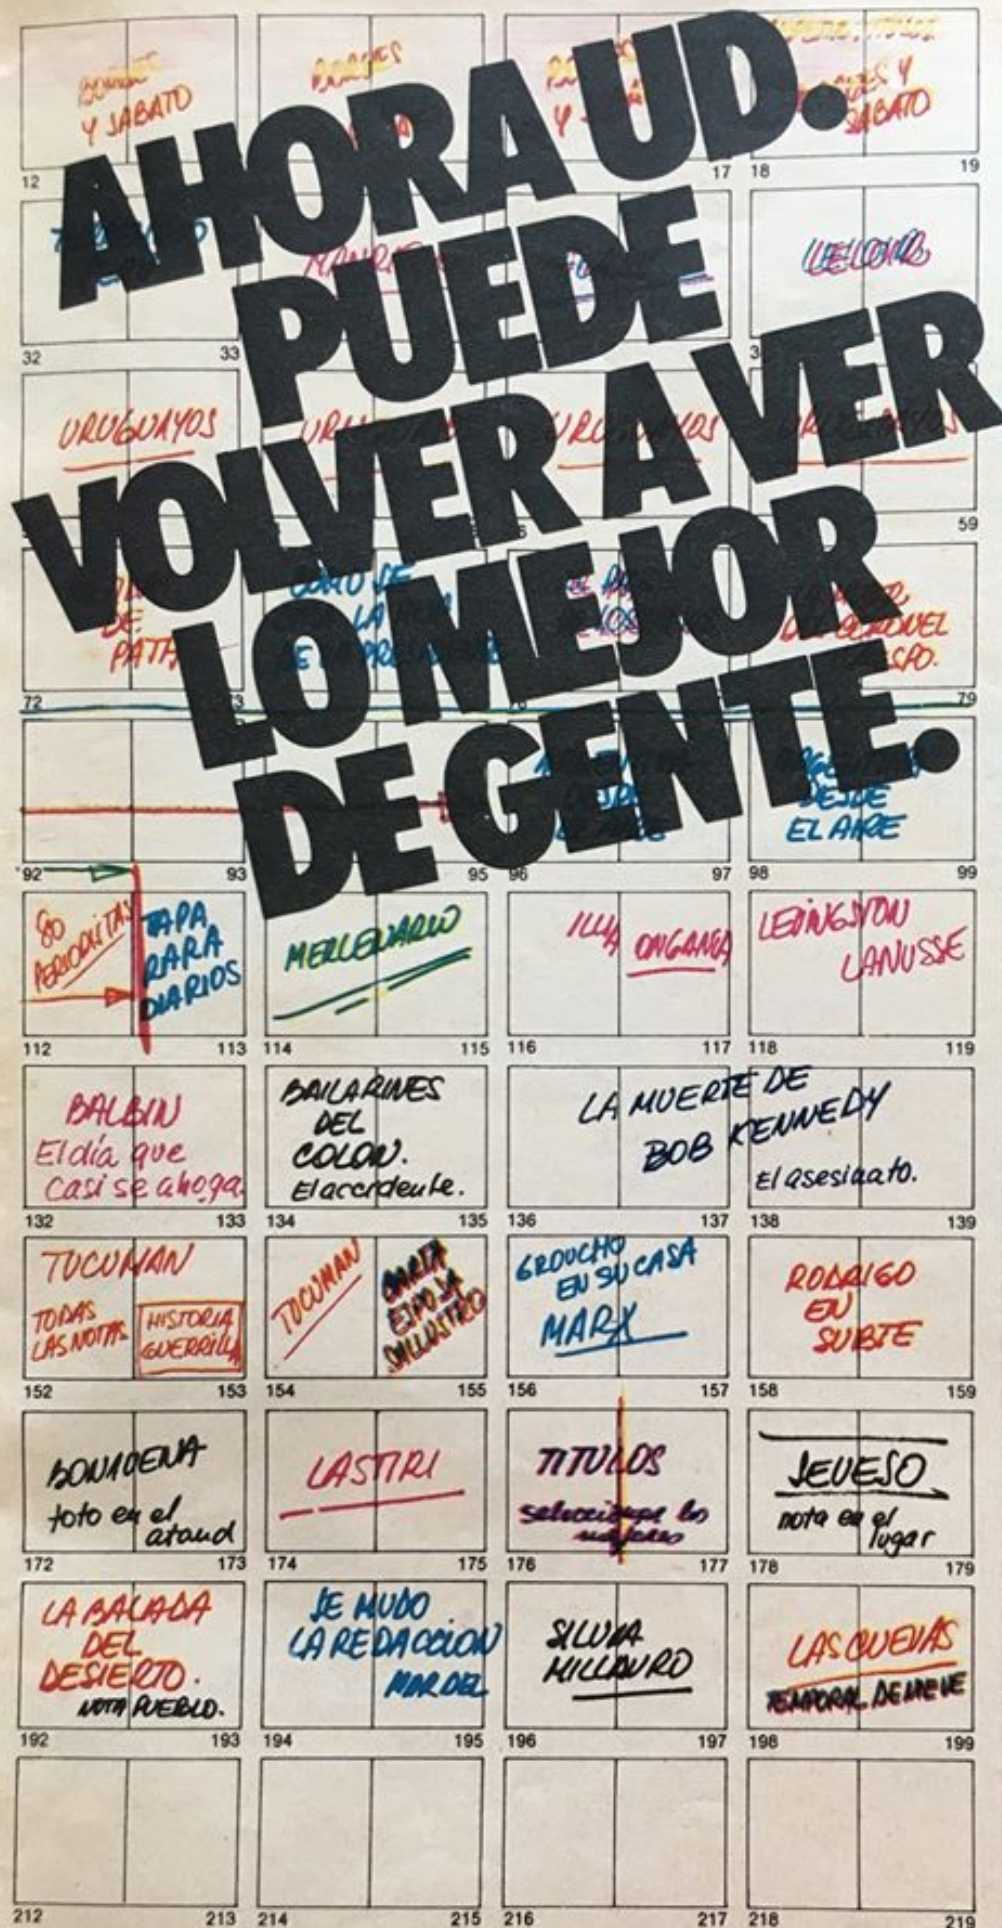 AHORA UD.
PUEDE
VOLVER A VER
LO MEJOR
DE GENTE.
Y SABATO
BORGES
Y
SABATO
12
17
18
19
LELOIR
32
33
URUGUAYOS
URUGUAYOS
59
DE
COMO SE
LA
DE
CORONEL
72
79
DESDE
EL AIRE
92
93
95
96
97
98
99
80
PERIODISTAS
TAPA
PARA
DIARIOS
MERCENARIO
ILLIA ONGANIA
LEVINGSTON
LANUSSE
112
113
114
115
116
117
118
119
BALBIN
El día que
casi se ahoga.
BAILARINES
DEL
COLON.
El accidente.
LA MUERTE DE
BOB KENNEDY
El asesinato.
132
133
134
135
136
137
138
139
TUCUMAN
TODAS
LAS NOTAS
HISTORIA
GUERRILLA
TUCUMAN
CARTA
ESPOSA
SALLUSTRO
GROUCHO
EN SU CASA
MARX
RODRIGO
EN
SUBTE
152
153
154
155
156
157
158
159
BONAVENA
foto en el
ataud
LASTIRI
TITULOS
seleccionar los
mejores
SEVESO
nota en el
lugar
172
173
174
175
176
177
178
179
LA BALADA
DEL
DESIERTO.
NOTA PUEBLO.
SE MUDO
LA REDACCION
MARDEL
SILVIA
MILLAURO
LAS CUEVAS
TEMPORAL DE NIEVE
192
193
194
195
196
197
198
199
212
213
214
215
216
217
218
219